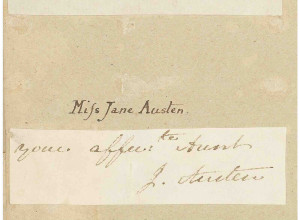 Miſs Jane Austen.
your affec:^te Aunt
J. Austen